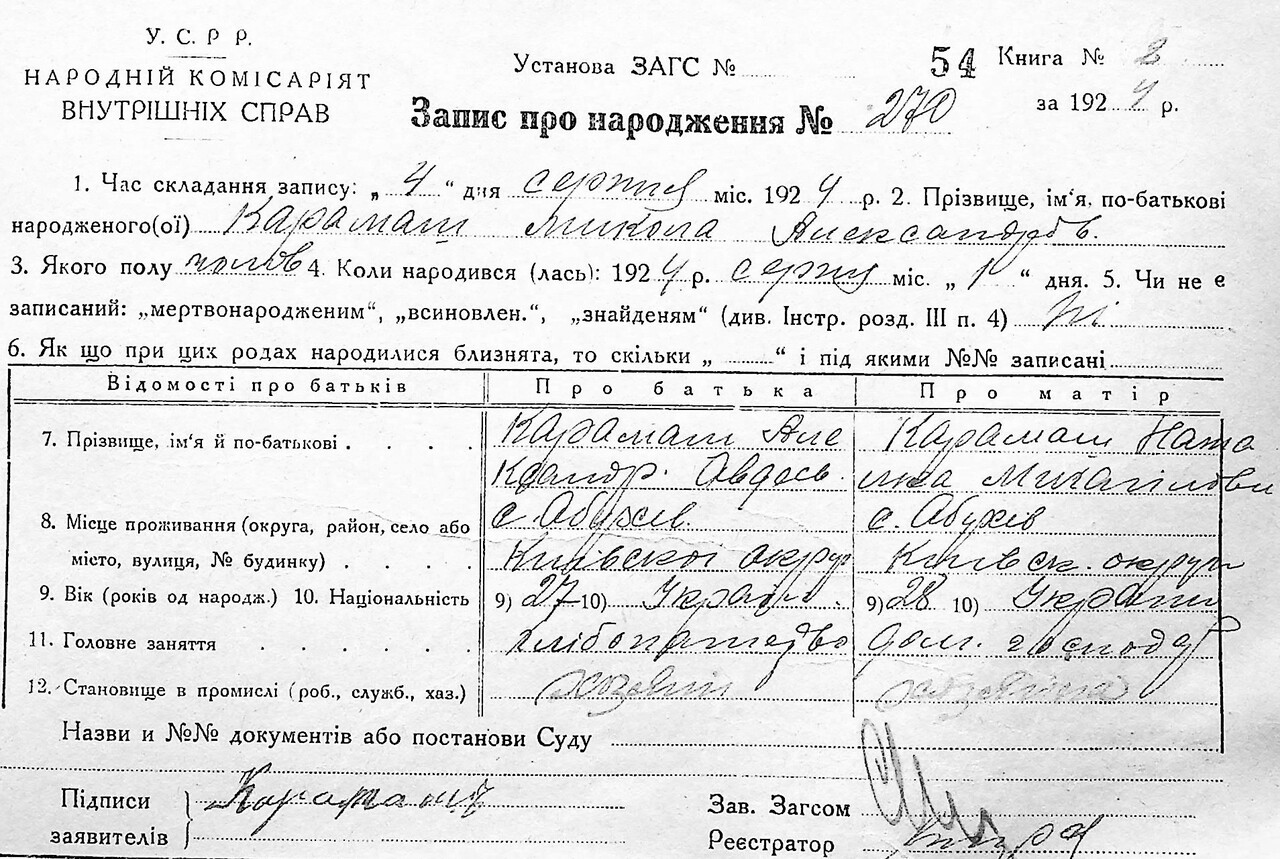 У. С. Р Р.
НАРОДНІЙ КОМІСАРІЯТ
ВНУТРІШНІХ СПРАВ
Установа ЗАГС № 54 Книга № 2
за 1924 р.
Запис про народження № 270
1. Час складання запису: „ 4 “ дня серпня міс. 1924 р. 2. Прізвище, ім‘я, по-батькові
народженого(ої) Карамаш Микола Александров.
3. Якого полу чолов 4. Коли народився (лась): 1924 р. серпня міс. „ 1 “ дня. 5. Чи не є
записаний: „мертвонародженим“, „всиновлен.“, „знайденям“ (див. Інстр. розд. III п. 4) Ні
6. Як що при цих родах народилися близнята, то скільки „ “ і під якими №№ записані
Відомості про батьків Про батька Про матір
7. Прізвище, ім‘я й по-батькові . . . . Карамаш Але Карамаш Ната
ксандр. Авдеев. лка Михайловн
8. Місце проживання (округа, район, село або с. Абухів с. Абухів
місто, вулиця, № будинку) . . . . Київскої округ Київск. округи
9. Вік (років од народж.) 10. Національність 9) 27 10) Україн. 9) 28 10) Україн
11. Головне заняття . . . . . . хлібопашедво дом. господ
12. Становище в промислі (роб., служб., хаз.) хозяїн хозяїка
Назви и №№ документів або постанови Суду
Підписи Карамашъ Зав. Загсом
заявителів Реєстратор